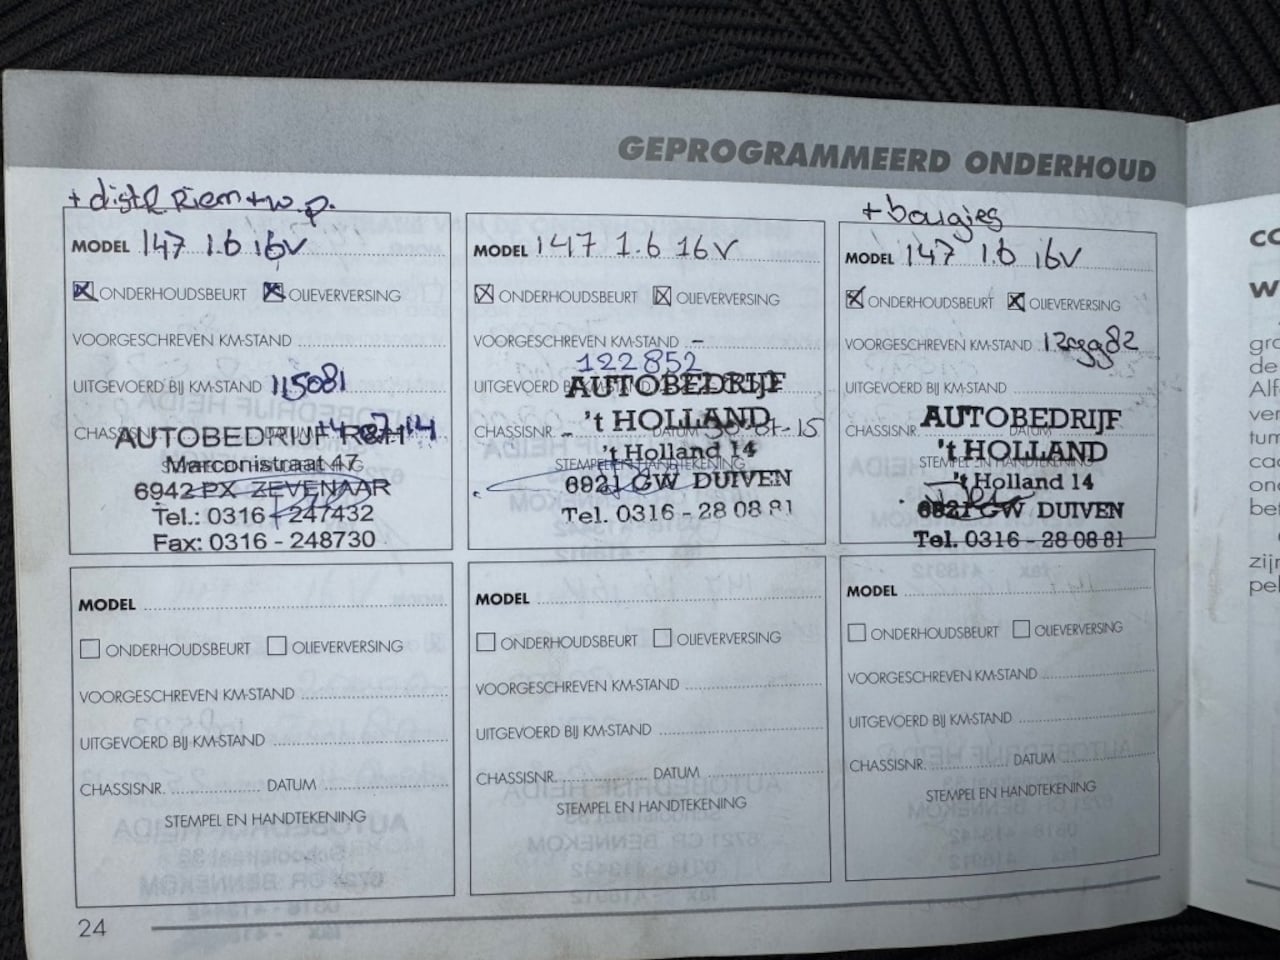 GEPROGRAMMEERD ONDERHOUD
+ distr. Riem + w.p.
MODEL 147 1.6 16V
ONDERHOUDSBEURT OLIEVERVERSING
VOORGESCHREVEN KM-STAND
UITGEVOERD BIJ KM-STAND 115081
CHASSISNR.
AUTOBEDRIJF R&H
Marconistraat 47
6942 PX ZEVENAAR
Tel.: 0316 - 247432
Fax: 0316 - 248730
MODEL 147 1.6 16V
ONDERHOUDSBEURT OLIEVERVERSING
VOORGESCHREVEN KM-STAND -
122852
UITGEVOERD BIJ KM-STAND
AUTOBEDRIJF
CHASSISNR. - DATUM 30-01-15
't HOLLAND
STEMPEL EN HANDTEKENING
't Holland 14
6921 GW DUIVEN
Tel. 0316 - 28 08 81
+ bougies
MODEL 147 1.6 16V
ONDERHOUDSBEURT OLIEVERVERSING
VOORGESCHREVEN KM-STAND
UITGEVOERD BIJ KM-STAND
CHASSISNR. DATUM
AUTOBEDRIJF
't HOLLAND
STEMPEL EN HANDTEKENING
't Holland 14
6921 GW DUIVEN
Tel. 0316 - 28 08 81
MODEL
ONDERHOUDSBEURT OLIEVERVERSING
VOORGESCHREVEN KM-STAND
UITGEVOERD BIJ KM-STAND
CHASSISNR. DATUM
STEMPEL EN HANDTEKENING
MODEL
ONDERHOUDSBEURT OLIEVERVERSING
VOORGESCHREVEN KM-STAND
UITGEVOERD BIJ KM-STAND
CHASSISNR. DATUM
STEMPEL EN HANDTEKENING
MODEL
ONDERHOUDSBEURT OLIEVERVERSING
VOORGESCHREVEN KM-STAND
UITGEVOERD BIJ KM-STAND
CHASSISNR. DATUM
STEMPEL EN HANDTEKENING
24